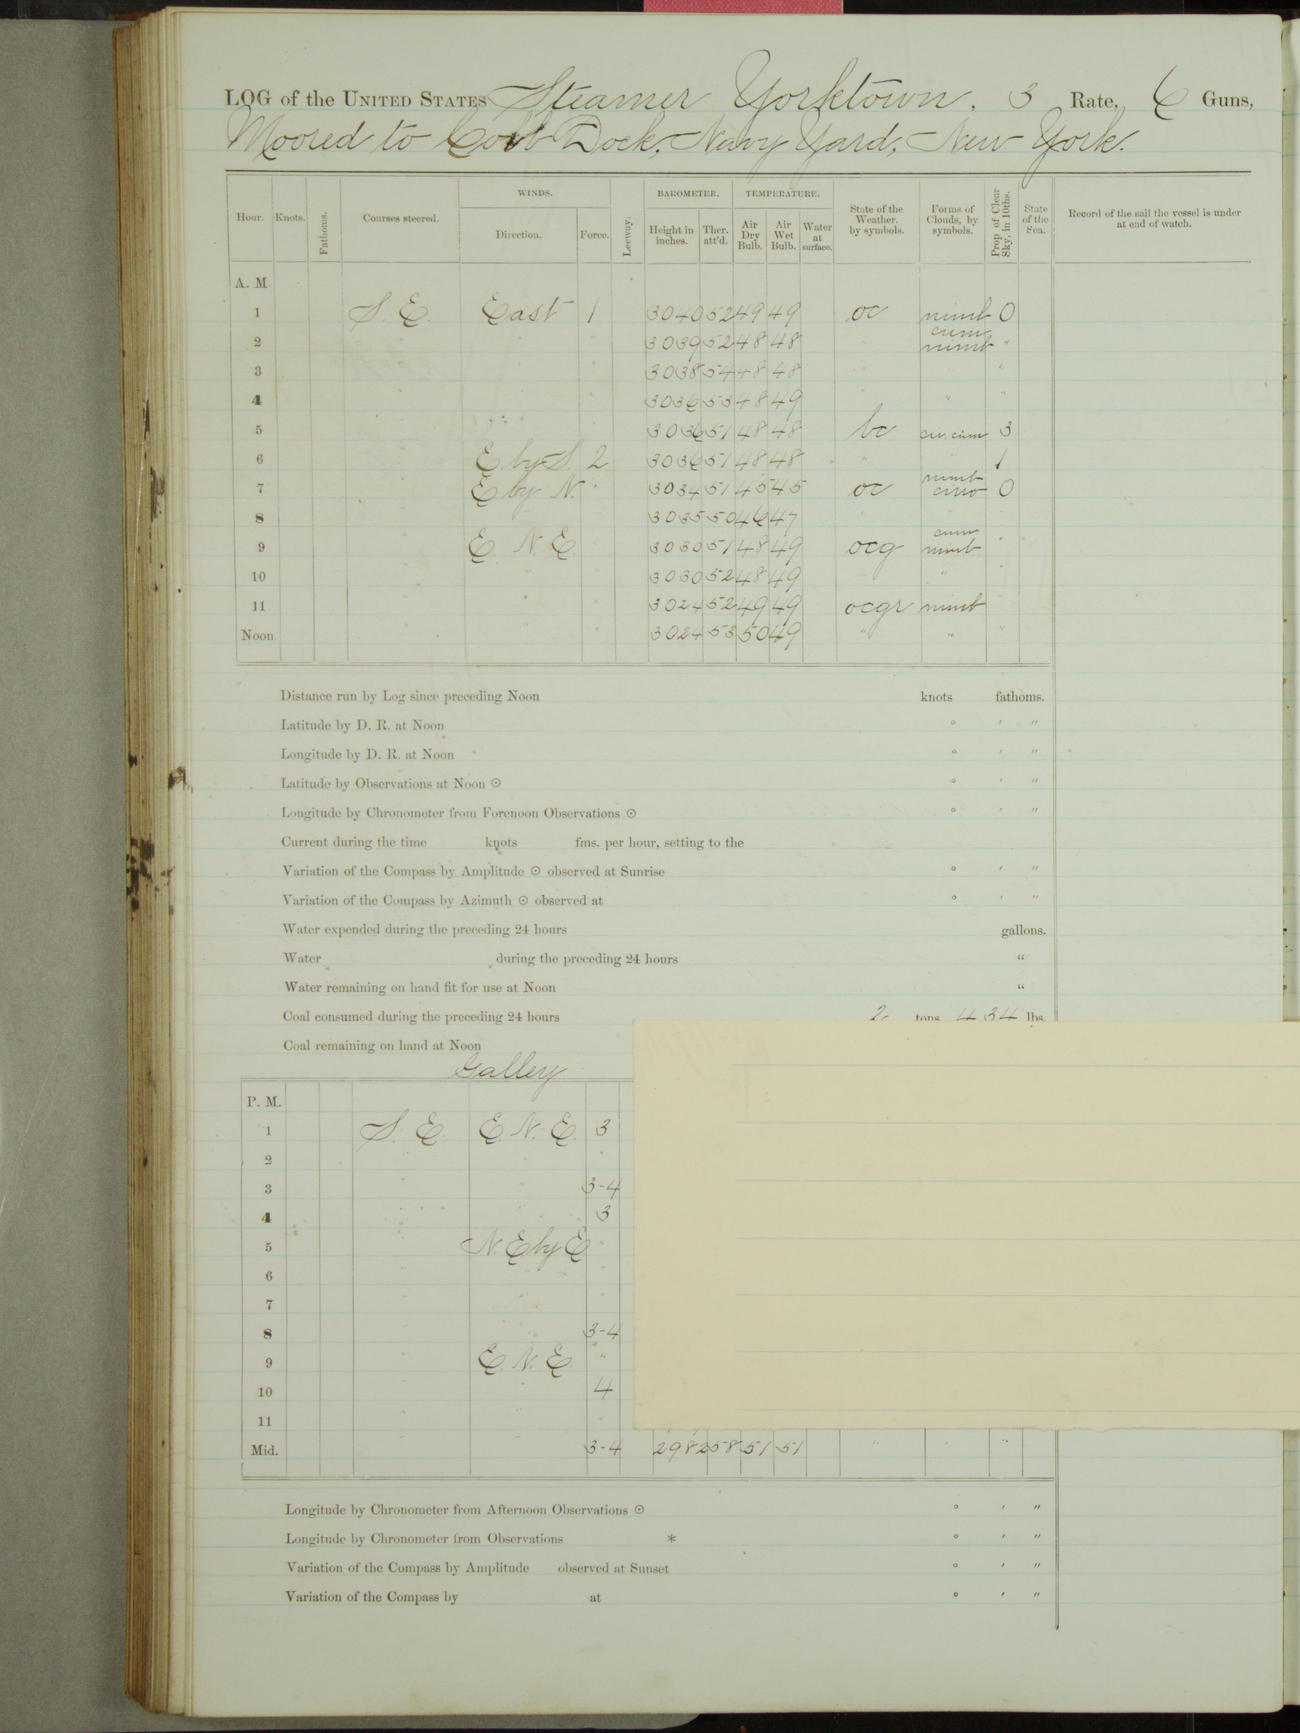 LOG of the UNITED STATES Steamer Yorktown, 3 Rate, 6 Guns,
Moored to Cobb Dock, Navy Yard, New York.
WINDS. BAROMETER. TEMPERATURE.
Hour. Knots. Fathoms. Courses steered. Direction. Force. Leeway. Height in inches. Ther. att'd. Air Dry Bulb. Air Wet Bulb. Water at surface. State of the Weather, by symbols. Forms of Clouds, by symbols. Prop. of Clear Sky, in 10ths. State of the Sea. Record of the sail the vessel is under at end of watch.
A. M.
1 S. E. East 1 3040 52 49 49 oc nimb 0
2 " " " 3039 52 48 48 " cum nimb "
3 " " " 3038 54 48 48 " " "
4 " " " 3036 53 48 49 " " "
5 " " " 3036 51 48 48 bc cir. cum 3
6 " E by S. 2 3036 51 48 48 " " 1
7 " E by N. " 3034 51 45 45 oc nimb cirro 0
8 " " " 3035 50 46 47 " " "
9 " E. N. E. " 3030 51 48 49 ocg cum nimb "
10 " " " 3030 52 48 49 " " "
11 " " " 3024 52 49 49 ocgr nimb "
Noon. " " " 3024 53 50 49 " " "
Distance run by Log since preceding Noon knots fathoms.
Latitude by D. R. at Noon ° ′ ″
Longitude by D. R. at Noon ° ′ ″
Latitude by Observations at Noon ☉ ° ′ ″
Longitude by Chronometer from Forenoon Observations ☉ ° ′ ″
Current during the time knots fms. per hour, setting to the
Variation of the Compass by Amplitude ☉ observed at Sunrise ° ′ ″
Variation of the Compass by Azimuth ☉ observed at ° ′ ″
Water expended during the preceding 24 hours gallons.
Water during the preceding 24 hours "
Water remaining on hand fit for use at Noon "
Coal consumed during the preceding 24 hours 2 tons 434 lbs.
Coal remaining on hand at Noon
Galley
P. M.
1 S. E. E. N. E. 3
2 " " "
3 " " 3-4
4 " " 3
5 " N. E by E "
6 " " "
7 " " "
8 " " 3-4
9 " E. N. E. "
10 " " 4
11 " " "
Mid. " " 3-4 2982 58 51 51 " " "
Longitude by Chronometer from Afternoon Observations ☉ ° ′ ″
Longitude by Chronometer from Observations * ° ′ ″
Variation of the Compass by Amplitude observed at Sunset ° ′ ″
Variation of the Compass by at ° ′ ″